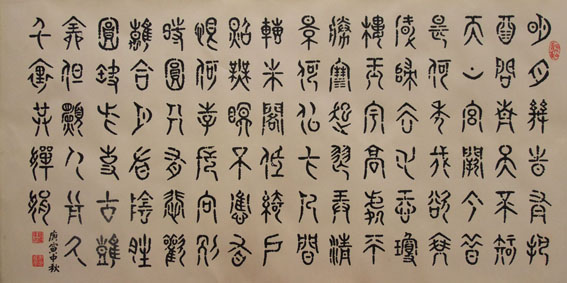 明月幾時有把
酒問青天不知
天上宮闕今夕
是何年我欲乘
風歸去又恐瓊
樓玉宇高處不
勝寒起舞弄清
影何似在人間
轉朱閣低綺戶
照無眠不應有
恨何事長向別
時圓人有悲歡
離合月有陰晴
圓缺此事古難
全但願人長久
千里共嬋娟
庚寅中秋